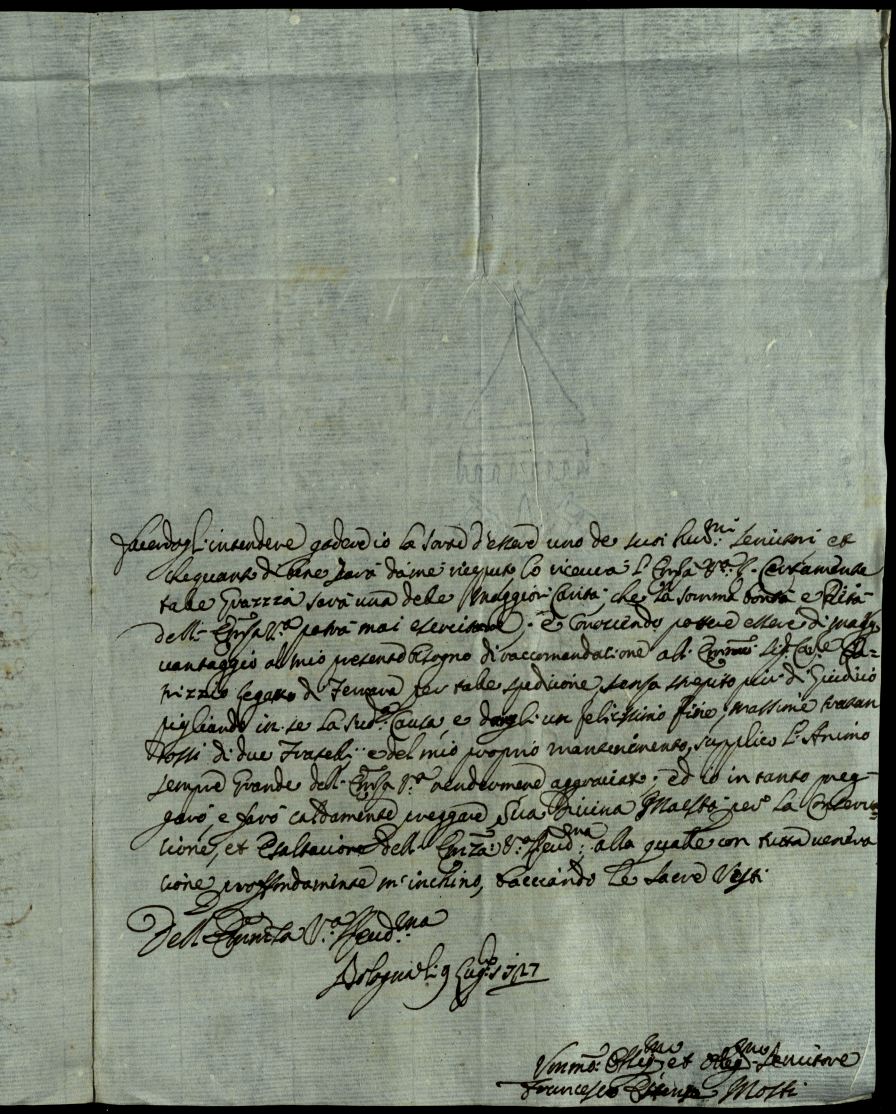 facendogli intendere godere io la sorte d'essere uno de suoi hu.mi servitori et
che quanto di bene sarà da me riceputo lo riceva l'Em.za V.ra Certamente
tale Grazzia sarà una dele maggiori Carità che la somma bontà e Pietà
dell'Em.za V.ra potrà mai esercitare. E Conoscendo potere essere di magg.
vantaggio al mio presente bisogno di raccomandatione all' Em.mo Sig. Ca.e Pa=
trizzio Legato di Ferrara per tale spedicione, senza strepito più di Giudicio
pigliando in se la sud.a Causa, e dargli un felicissimo fine, massime tratan
dossi di due Frateli e del mio proprio mantenimento, supplico l'Animo
sempre Grande dell'Em.za V.ra rendermene aggraciato. Ed io in tanto preg=
garò e farò caldamente preggare Sua Divina Maestà per la Conserva
cione, et Esaltacione dell' Em.za V.ra Reud.ma, alla quale con tutta venera
cione profondamente m'inchino, bacciando le sacre Vesti.
Dell Eminza V.ra Reud.ma
Bologna li 9 Lug.o 1727
Umm.o et Oblig.mo Servitore
Francesco Estense Mosti